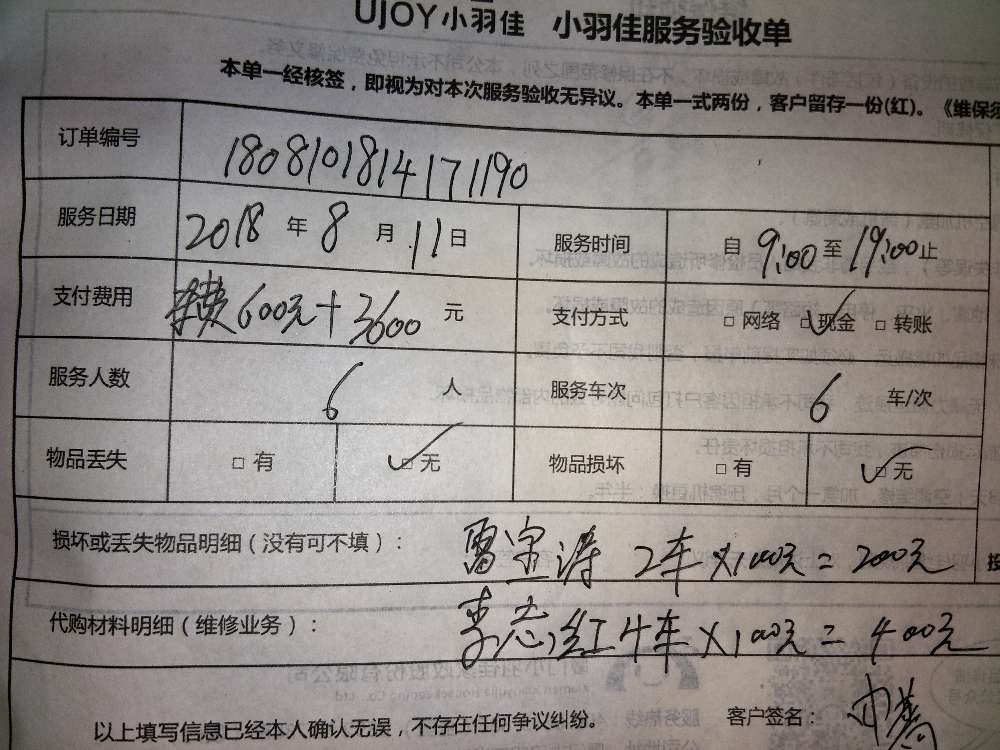 UJOY小羽佳 小羽佳服务验收单
本单一经核签，即视为对本次服务验收无异议。本单一式两份，客户留存一份(红)。《维保须
订单编号 1808101814171190
服务日期 2018 年 8 月 11 日 服务时间 自 9:00 至 19:00 止
支付费用 车费600元+3600 元 支付方式 □ 网络 □ 现金 □ 转账
服务人数 6 人 服务车次 6 车/次
物品丢失 □ 有 □ 无 物品损坏 □ 有 □ 无
损坏或丢失物品明细（没有可不填）： 雷宝涛 2车×100元=200元
代购材料明细（维修业务）： 李志红 4车×100元=400元
以上填写信息已经本人确认无误，不存在任何争议纠纷。 客户签名：